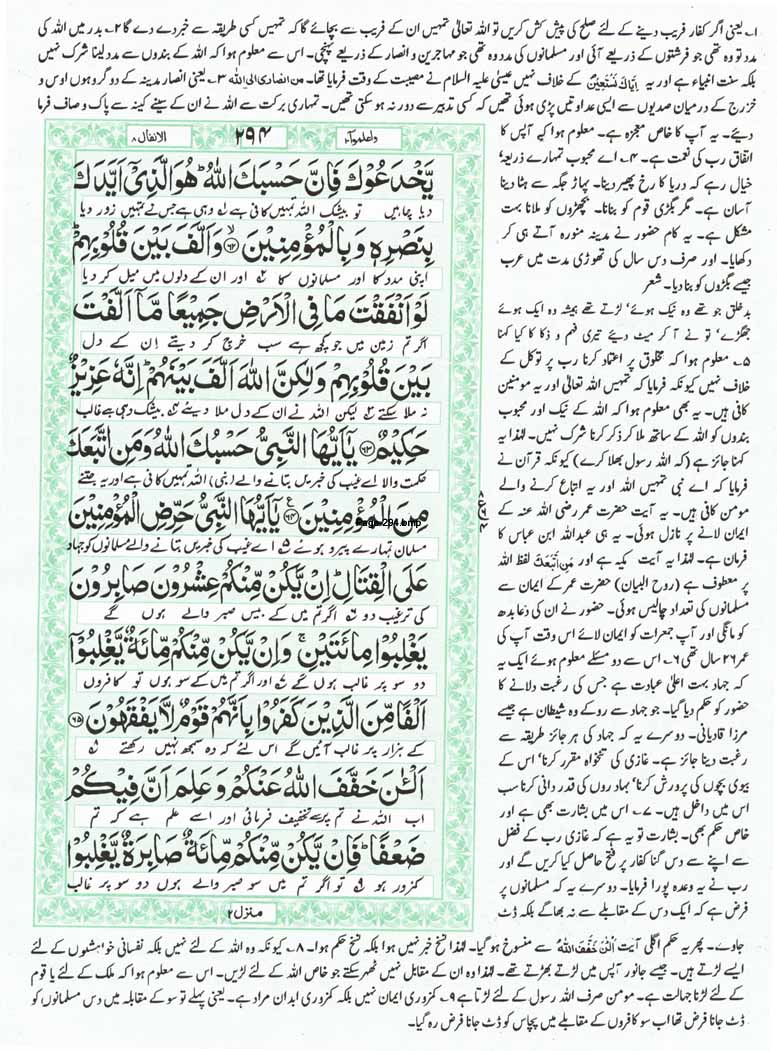 ۱؎ یعنی اگر کفار فریب دینے کے لئے صلح کی پیش کش کریں تو اللہ تعالیٰ تمہیں ان کے فریب سے بچائے گا کہ تمہیں کسی طریقہ سے خبر دے دے گا ۲؎ بدر میں اللہ کی
مدد تو وہ تھی جو فرشتوں کے ذریعے آئی اور مسلمانوں کی مدد وہ تھی جو مہاجرین و انصار کے ذریعے پہنچی۔ اس سے معلوم ہوا کہ اللہ کے بندوں سے مدد لینا شرک نہیں
بلکہ سنت انبیاء ہے اور یہ اِیَّاکَ نَسْتَعِیْنُ کے خلاف نہیں عیسیٰ علیہ السلام نے مصیبت کے وقت فرمایا تھا۔ من انصاری الی اللہ ۳؎ یعنی انصار مدینہ کے دو گروہوں اوس و
خزرج کے درمیان صدیوں سے ایسی عداوتیں پڑی ہوئی تھیں کہ کسی تدبیر سے دور نہ ہو سکتی تھیں۔ تمہاری برکت سے اللہ نے ان کے سینے کینہ سے پاک و صاف فرما
دیئے۔ یہ آپ کا خاص معجزہ ہے۔ معلوم ہوا کہ آپس کا
اتفاق رب کی نعمت ہے۔ ۴؎ اے محبوب تمہارے ذریعہ'
خیال رہے کہ دریا کا رخ پھیر دینا۔ پہاڑ جگہ سے ہٹا دینا
آسان ہے۔ مگر بگڑی قوم کو بنانا۔ بچھڑوں کو ملانا بہت
مشکل ہے۔ یہ کام حضور نے مدینہ منورہ آتے ہی کر
دکھایا۔ اور صرف دس سال کی تھوڑی مدت میں عرب
جیسے بگڑوں کو بنا دیا۔ شعر
بدخلق جو تھے وہ نیک ہوئے' لڑتے تھے ہمیشہ وہ ایک ہوئے
جھگڑے' تو نے آ کر میٹ دیئے تیری فہم و ذکا کا کیا کہنا
۵؎ معلوم ہوا کہ مخلوق پر اعتماد کرنا رب پر توکل کے
خلاف نہیں کیونکہ فرمایا کہ تمہیں اللہ تعالیٰ اور یہ مومنین
کافی ہیں۔ یہ بھی معلوم ہوا کہ اللہ کے نیک اور محبوب
بندوں کو اللہ کے ساتھ ملا کر ذکر کرنا شرک نہیں۔ لہٰذا یہ
کہنا جائز ہے (کہ اللہ رسول بھلا کرے) کیونکہ قرآن نے
فرمایا کہ اے نبی تمہیں اللہ اور یہ اتباع کرنے والے
مومن کافی ہیں۔ یہ آیت حضرت عمر رضی اللہ عنہ کے
ایمان لانے پر نازل ہوئی۔ یہ ہی عبداللہ ابن عباس کا
فرمان ہے۔ لہٰذا یہ آیت مکیہ ہے اور مَنِ اتَّبَعَکَ لفظ اللہ
پر معطوف ہے (روح البیان) حضرت عمر کے ایمان سے
مسلمانوں کی تعداد چالیس ہوئی۔ حضور نے ان کی دعا بدھ
کو مانگی اور آپ جمعرات کو ایمان لائے اس وقت آپ کی
عمر ۲۶ سال تھی ۶؎ اس سے دو مسئلے معلوم ہوئے ایک یہ
کہ جہاد بہت اعلیٰ عبادت ہے جس کی رغبت دلانے کا
حضور کو حکم دیا گیا۔ جو جہاد سے روکے وہ شیطان ہے جیسے
مرزا قادیانی۔ دوسرے یہ کہ جہاد کی ہر جائز طریقہ سے
رغبت دینا جائز ہے۔ غازی کی تنخواہ مقرر کرنا' اس کے
بیوی بچوں کی پرورش کرنا' بہادروں کی قدر دانی کرنا سب
اس میں داخل ہیں۔ ۷؎ اس میں بشارت بھی ہے اور
خاص حکم بھی۔ بشارت تو یہ ہے کہ غازی رب کے فضل
سے اپنے سے دس گنا کفار پر فتح حاصل کیا کریں گے اور
رب نے یہ وعدہ پورا فرمایا۔ دوسرے یہ کہ مسلمانوں پر
فرض ہے کہ ایک دس کے مقابلے سے نہ بھاگے بلکہ ڈٹ
واعلموآ۱۰ ۲۹۴ الانفال ۸
يَّخْدَعُوْكَ فَاِنَّ حَسْبَكَ اللّٰهُ ؕ هُوَ الَّذِیْۤ اَیَّدَكَ
دیا چاہیں تو بیشک اللہ تمہیں کافی ہے ۱؎ وہی ہے جس نے تمہیں زور دیا
بِنَصْرِهٖ وَ بِالْمُؤْمِنِیْنَ ۙ﴿۶۲﴾ وَ اَلَّفَ بَیْنَ قُلُوْبِهِمْ ؕ
اپنی مدد کا اور مسلمانوں کا ۲؎ اور ان کے دلوں میں میل کر دیا
لَوْ اَنْفَقْتَ مَا فِی الْاَرْضِ جَمِیْعًا مَّاۤ اَلَّفْتَ
اگر تم زمین میں جو کچھ ہے سب خرچ کر دیتے ان کے دل
بَیْنَ قُلُوْبِهِمْ وَ لٰكِنَّ اللّٰهَ اَلَّفَ بَیْنَهُمْ ؕ اِنَّهٗ عَزِیْزٌ
نہ ملا سکتے ۳؎ لیکن اللہ نے ان کے دل ملا دیئے ۴؎ بیشک وہی ہے غالب
حَكِیْمٌ ﴿۶۳﴾ یٰۤاَیُّهَا النَّبِیُّ حَسْبُكَ اللّٰهُ وَ مَنِ اتَّبَعَكَ
حکمت والا اے غیب کی خبریں بتانے والے (نبی) اللہ تمہیں کافی ہے اور یہ جتنے
مِنَ الْمُؤْمِنِیْنَ ﴿۶۴﴾ یٰۤاَیُّهَا النَّبِیُّ حَرِّضِ الْمُؤْمِنِیْنَ
Page 294.bmp
مسلمان تمہارے پیرو ہوئے ۵؎ اے غیب کی خبریں بتانے والے مسلمانوں کو جہاد
عَلَی الْقِتَالِ ؕ اِنْ یَّكُنْ مِّنْكُمْ عِشْرُوْنَ صَابِرُوْنَ
کی ترغیب دو ۶؎ اگر تم میں کے بیس صبر والے ہوں گے
یَغْلِبُوْا مِائَتَیْنِ ۚ وَ اِنْ یَّكُنْ مِّنْكُمْ مِّائَةٌ یَّغْلِبُوْۤا
دو سو پر غالب ہوں گے ۷؎ اور اگر تم میں کے سو ہوں تو کافروں
اَلْفًا مِّنَ الَّذِیْنَ كَفَرُوْا بِاَنَّهُمْ قَوْمٌ لَّا یَفْقَهُوْنَ ﴿۶۵﴾
کے ہزار پر غالب آئیں گے اس لئے کہ وہ سمجھ نہیں رکھتے ۸؎
اَلْـٰٔنَ خَفَّفَ اللّٰهُ عَنْكُمْ وَ عَلِمَ اَنَّ فِیْكُمْ
اب اللہ نے تم پر سے تخفیف فرمائی اور اسے علم ہے کہ تم
ضَعْفًا ؕ فَاِنْ یَّكُنْ مِّنْكُمْ مِّائَةٌ صَابِرَةٌ یَّغْلِبُوْا
کمزور ہو ۹؎ تو اگر تم میں سو صبر والے ہوں دو سو پر غالب
منزل ۲
جاوے۔ پھر یہ حکم اگلی آیت اَلْـٰٔنَ خَفَّفَ اللّٰهُ سے منسوخ ہو گیا۔ لہٰذا نسخ خبر نہیں ہوا بلکہ نسخ حکم ہوا۔ ۸؎ کیونکہ وہ اللہ کے لئے نہیں بلکہ نفسانی خواہشوں کے لئے
ایسے لڑتے ہیں۔ جیسے جانور آپس میں لڑتے بھڑتے تھے۔ لہٰذا وہ ان کے مقابل نہیں ٹھہر سکتے جو خاص اللہ کے لئے لڑیں۔ اس سے معلوم ہوا کہ ملک کے لئے یا قوم
کے لئے لڑنا جہالت ہے۔ مومن صرف اللہ رسول کے لئے لڑتا ہے ۹؎ کمزوری ایمان نہیں بلکہ کمزوری ابدان مراد ہے۔ یعنی پہلے تو سو کے مقابلہ میں دس مسلمانوں کو
ڈٹ جانا فرض تھا اب سو کافروں کے مقابلے میں پچاس کو ڈٹ جانا فرض رہ گیا۔